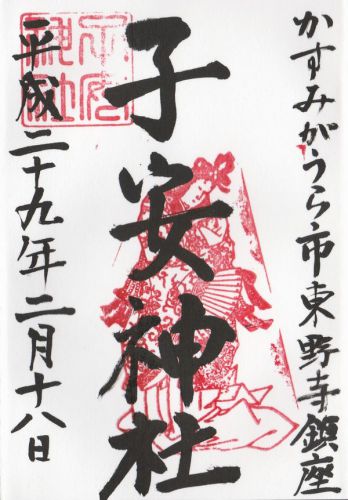 かすみがうら市東野寺鎮座
子安神社
平成二十九年二月十八日
子安神社